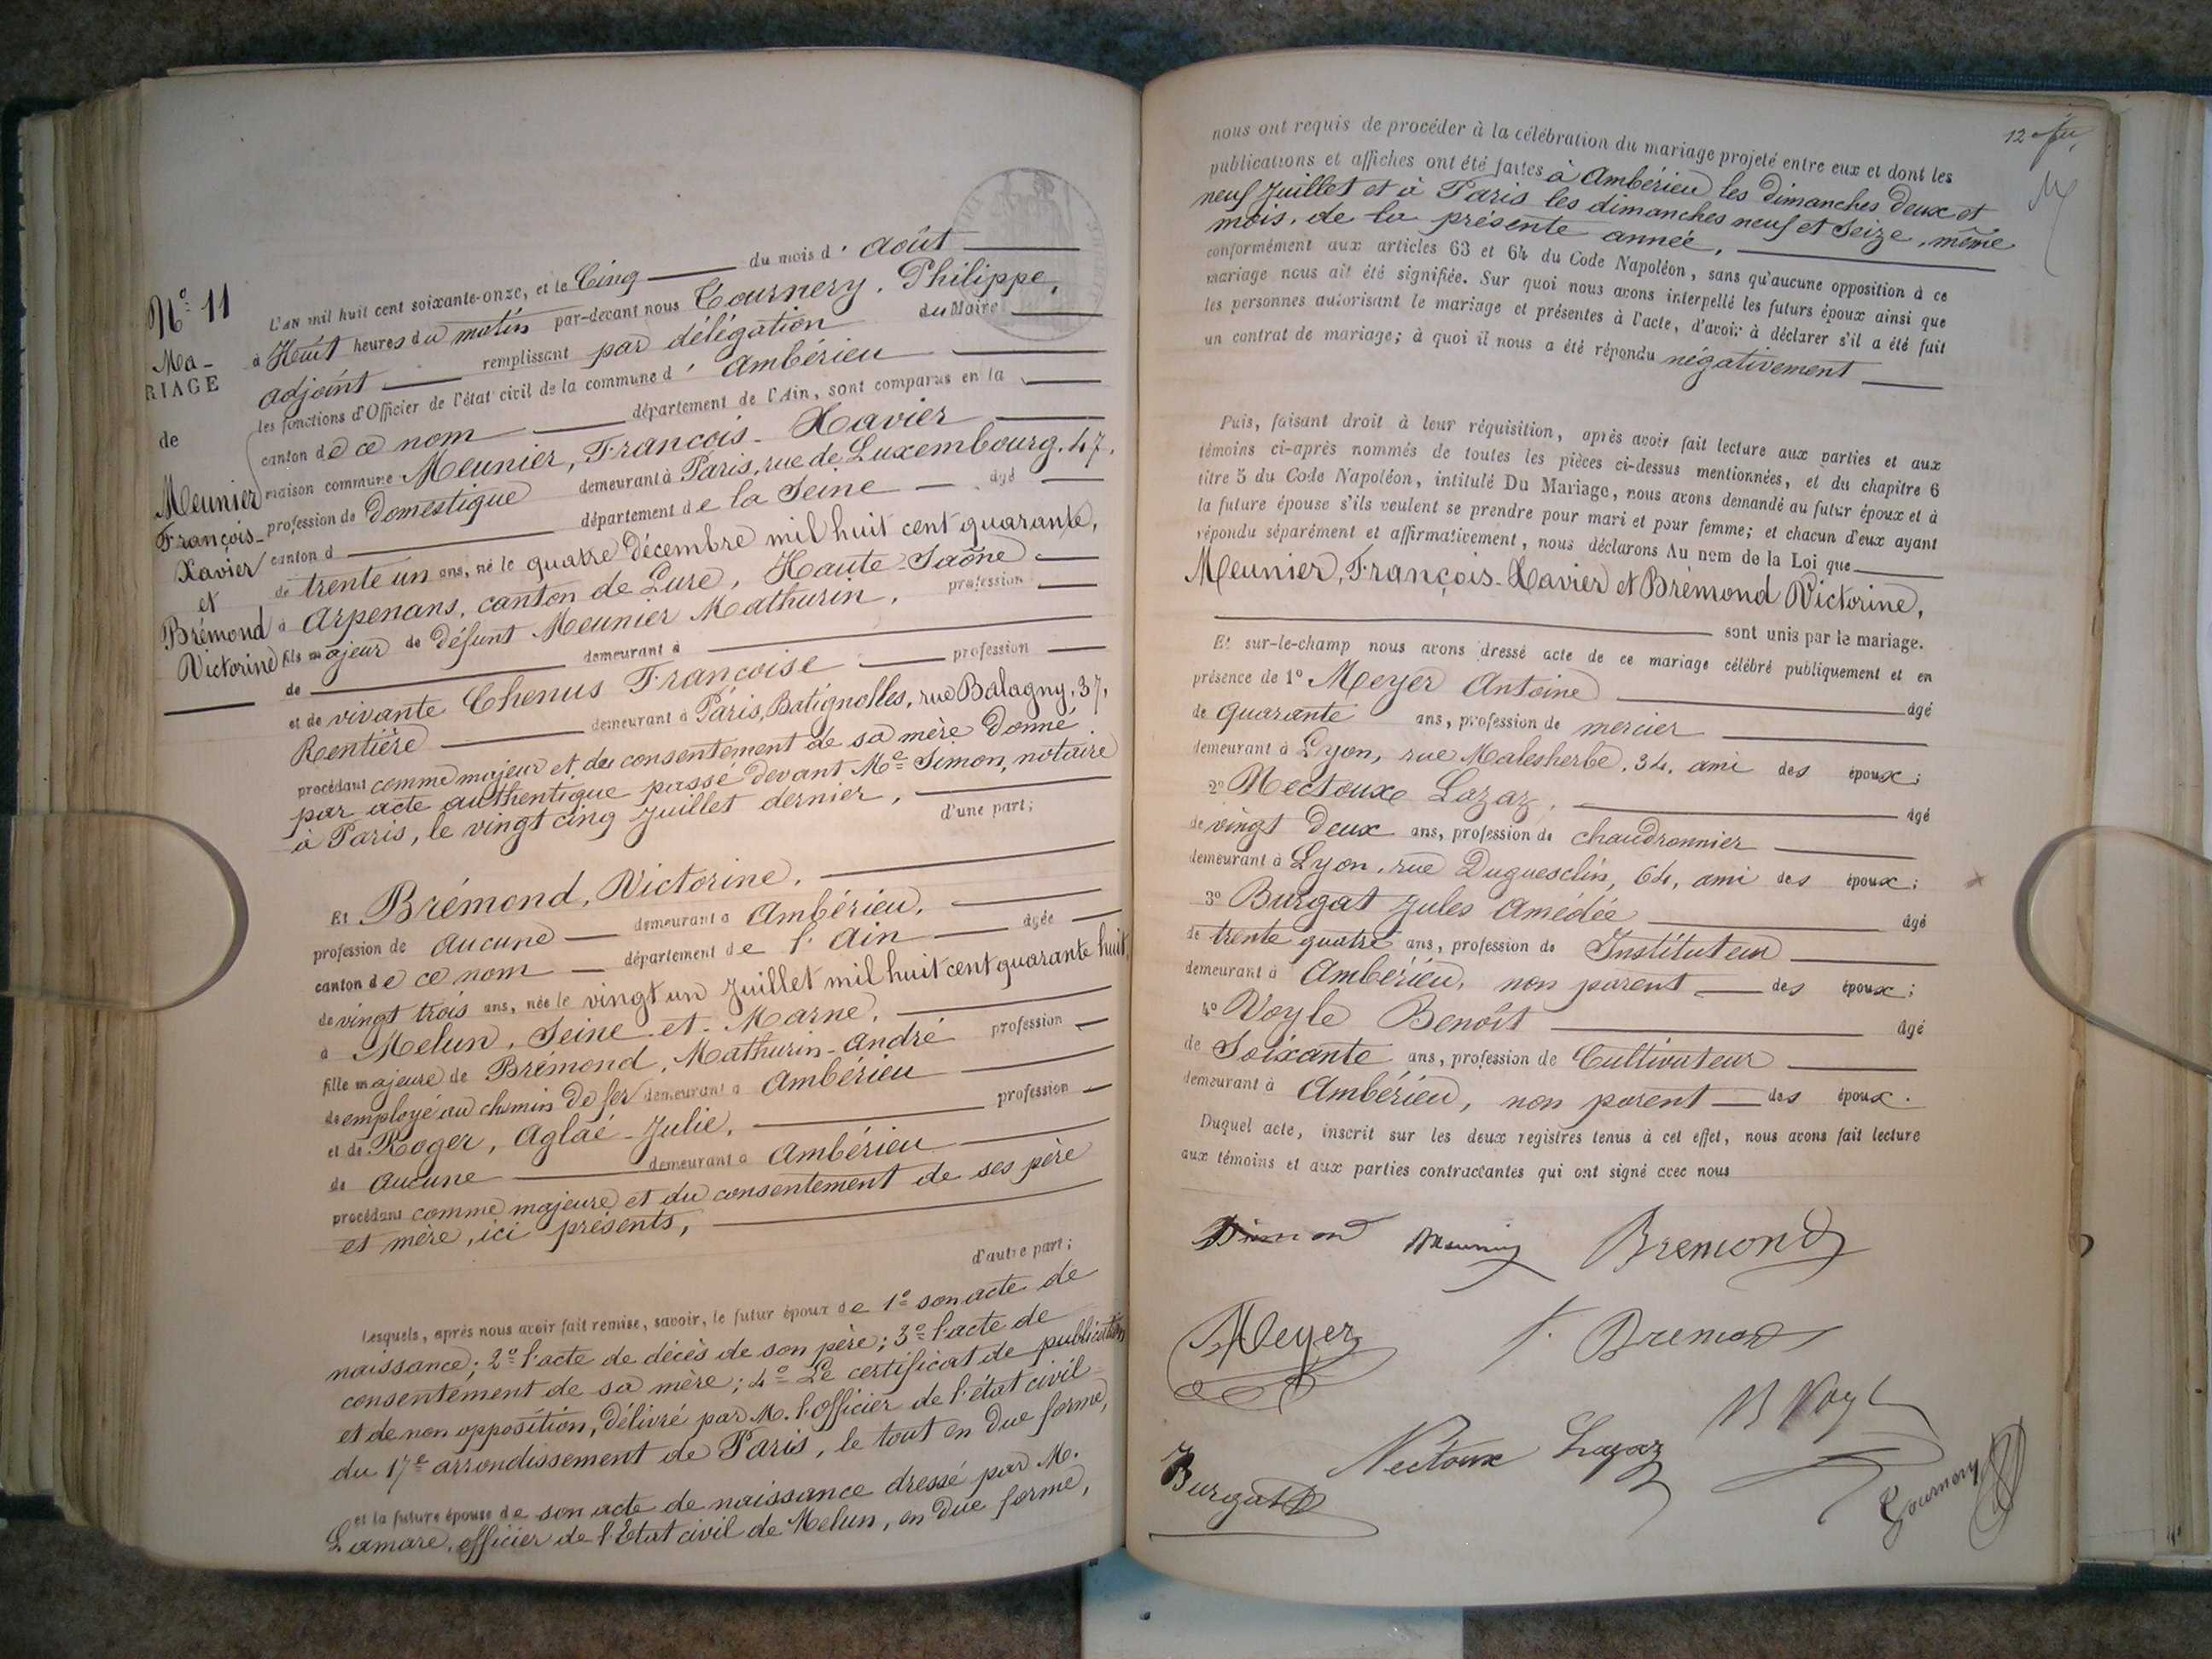 Nº 11
Ma-
RIAGE
de
Meunier
François-
Xavier
et
Brémond
Victorine
L'AN mil huit cent soixante-onze, et le Cinq du mois d' août
à Huit heures du matin par-devant nous Tournery, Philippe,
adjoint remplissant par délégation du Maire
les fonctions d'Officier de l'état civil de la commune d' Ambérieu
canton de ce nom département de l'Ain, sont comparus en la
maison commune Meunier, François-Xavier
profession de domestique demeurant à Paris, rue de Luxembourg, 47,
canton d département de la Seine âgé
de trente un ans, né le quatre décembre mil huit cent quarante,
à Arpenans, canton de Lure, Haute-Saône
fils majeur de défunt Meunier Mathurin, profession
de demeurant à
et de vivante Chenus Françoise profession
Rentière demeurant à Paris, Batignolles, rue Balagny, 37,
procédant comme majeur et du consentement de sa mère donné
par acte authentique passé devant Me Simon, notaire
à Paris, le vingt cinq Juillet dernier,
d'une part;
Et Brémond, Victorine,
profession de aucune demeurant à Ambérieu,
canton de ce nom département de l'Ain âgée
de vingt trois ans, née le vingt un Juillet mil huit cent quarante huit,
à Melun, Seine-et-Marne,
fille majeure de Brémond, Mathurin-André profession
de employé au chemin de fer demeurant à Ambérieu
et de Roger, Aglaé-Julie, profession
de aucune demeurant à Ambérieu
procédant comme majeure et du consentement de ses père
et mère, ici présents,
d'autre part;
Lesquels, après nous avoir fait remise, savoir, le futur époux de 1º son acte de
naissance; 2º l'acte de décès de son père; 3º l'acte de
consentement de sa mère; 4º Le certificat de publication
et de non opposition, délivré par M. l'officier de l'état civil
du 17e arrondissement de Paris, le tout en due forme,
et la future épouse de son acte de naissance dressé par M.
Lamare, officier de l'Etat civil de Melun, en due forme,
12
nous ont requis de procéder à la célébration du mariage projeté entre eux et dont les
publications et affiches ont été faites à Ambérieu les dimanches deux et
neuf Juillet et à Paris les dimanches neuf et seize, même
mois, de la présente année,
conformément aux articles 63 et 64 du Code Napoléon, sans qu'aucune opposition à ce
mariage nous ait été signifiée. Sur quoi nous avons interpellé les futurs époux ainsi que
les personnes autorisant le mariage et présentes à l'acte, d'avoir à déclarer s'il a été fait
un contrat de mariage; à quoi il nous a été répondu négativement
Puis, faisant droit à leur réquisition, après avoir fait lecture aux parties et aux
témoins ci-après nommés de toutes les pièces ci-dessus mentionnées, et du chapitre 6
titre 5 du Code Napoléon, intitulé Du Mariage, nous avons demandé au futur époux et à
la future épouse s'ils veulent se prendre pour mari et pour femme; et chacun d'eux ayant
répondu séparément et affirmativement, nous déclarons Au nom de la Loi que
Meunier, François-Xavier et Brémond Victorine,
sont unis par le mariage.
Et sur-le-champ nous avons dressé acte de ce mariage célébré publiquement et en
présence de 1º Meyer Antoine âgé
de quarante ans, profession de mercier
demeurant à Lyon, rue Malesherbe, 34, ami des époux;
2º Nectoux Lazaz, âgé
de vingt deux ans, profession de chaudronnier
demeurant à Lyon, rue Duguesclin, 64, ami des époux;
3º Burgat Jules Amédée âgé
de trente quatre ans, profession de Instituteur
demeurant à Ambérieu, non parent des époux;
4º Voyle Benoît âgé
de Soixante ans, profession de Cultivateur
demeurant à Ambérieu, non parent des époux.
Duquel acte, inscrit sur les deux registres tenus à cet effet, nous avons fait lecture
aux témoins et aux parties contractantes qui ont signé avec nous
Meunier Bremond
Meyer Bremond
Burgat Nectoux Lazaz Tournery